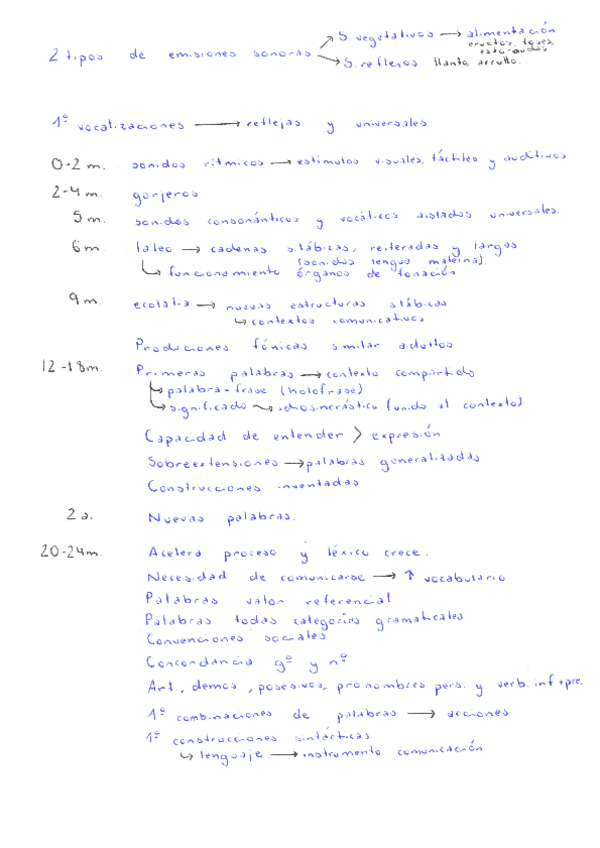 S. vegetativos → alimentación
eructos, toses,
2 tipos de emisiones sonoras
S. reflejos llanto, arrullo.
1º vocalizaciones → reflejas y universales
0-2 m. sonidos rítmicos → estímulos visuales, táctiles y auditivos
2-4 m. gorjeros
5 m. sonidos consonánticos y vocálicos aislados universales.
6 m. laleo → cadenas silábicas, reiteradas y largas
(sonidos lengua materna).
↳ funcionamiento órganos de fonación
9 m. ecolalia → nuevas estructuras silábicas
↳ contextos comunicativos
Producciones fónicas similar adultos
12-18m. Primeras palabras → contexto compartido
↳ palabra-frase (holofrase)
↳ significado → idiosincrástico (unido al contexto)
Capacidad de entender > expresión
Sobreextensiones → palabras generalizadas
Construcciones inventadas
2 a. Nuevas palabras.
20-24m. Acelera proceso y léxico crece.
Necesidad de comunicarse → ↑ vocabulario
Palabras valor referencial
Palabras todas categorías gramaticales
Convenciones sociales
Concordancia gº y nº
Art., demos, posesivos, pronombres pers. y verb. inf + pre.
1º combinaciones de palabras → acciones
1º construcciones sintácticas
↳ lenguaje → instrumento comunicación